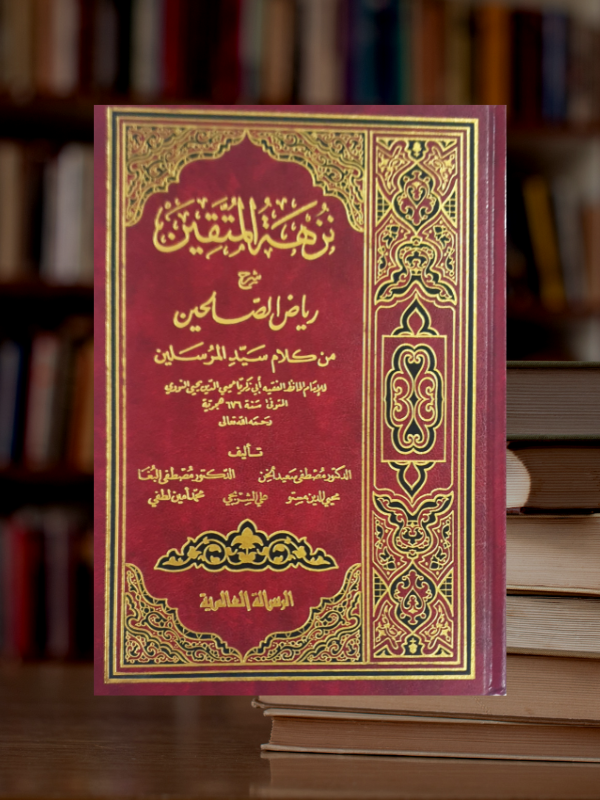 نُزْهَةُ المُتَّقِينَ
شرح
رياض الصّالحين
من كلام سيّد المرسلين
للإمام الحافظ الفقيه أبي زكريا محيي الدين يحيى النووي
المتوفى سنة ٦٧٦ هجرية
رحمه الله تعالى
تأليف
الدكتور مصطفى سعيد الخن الدكتور مصطفى البُغا
محيي الدين مستو علي الشربجي محمد أمين لطفي
الرسالة العالمية